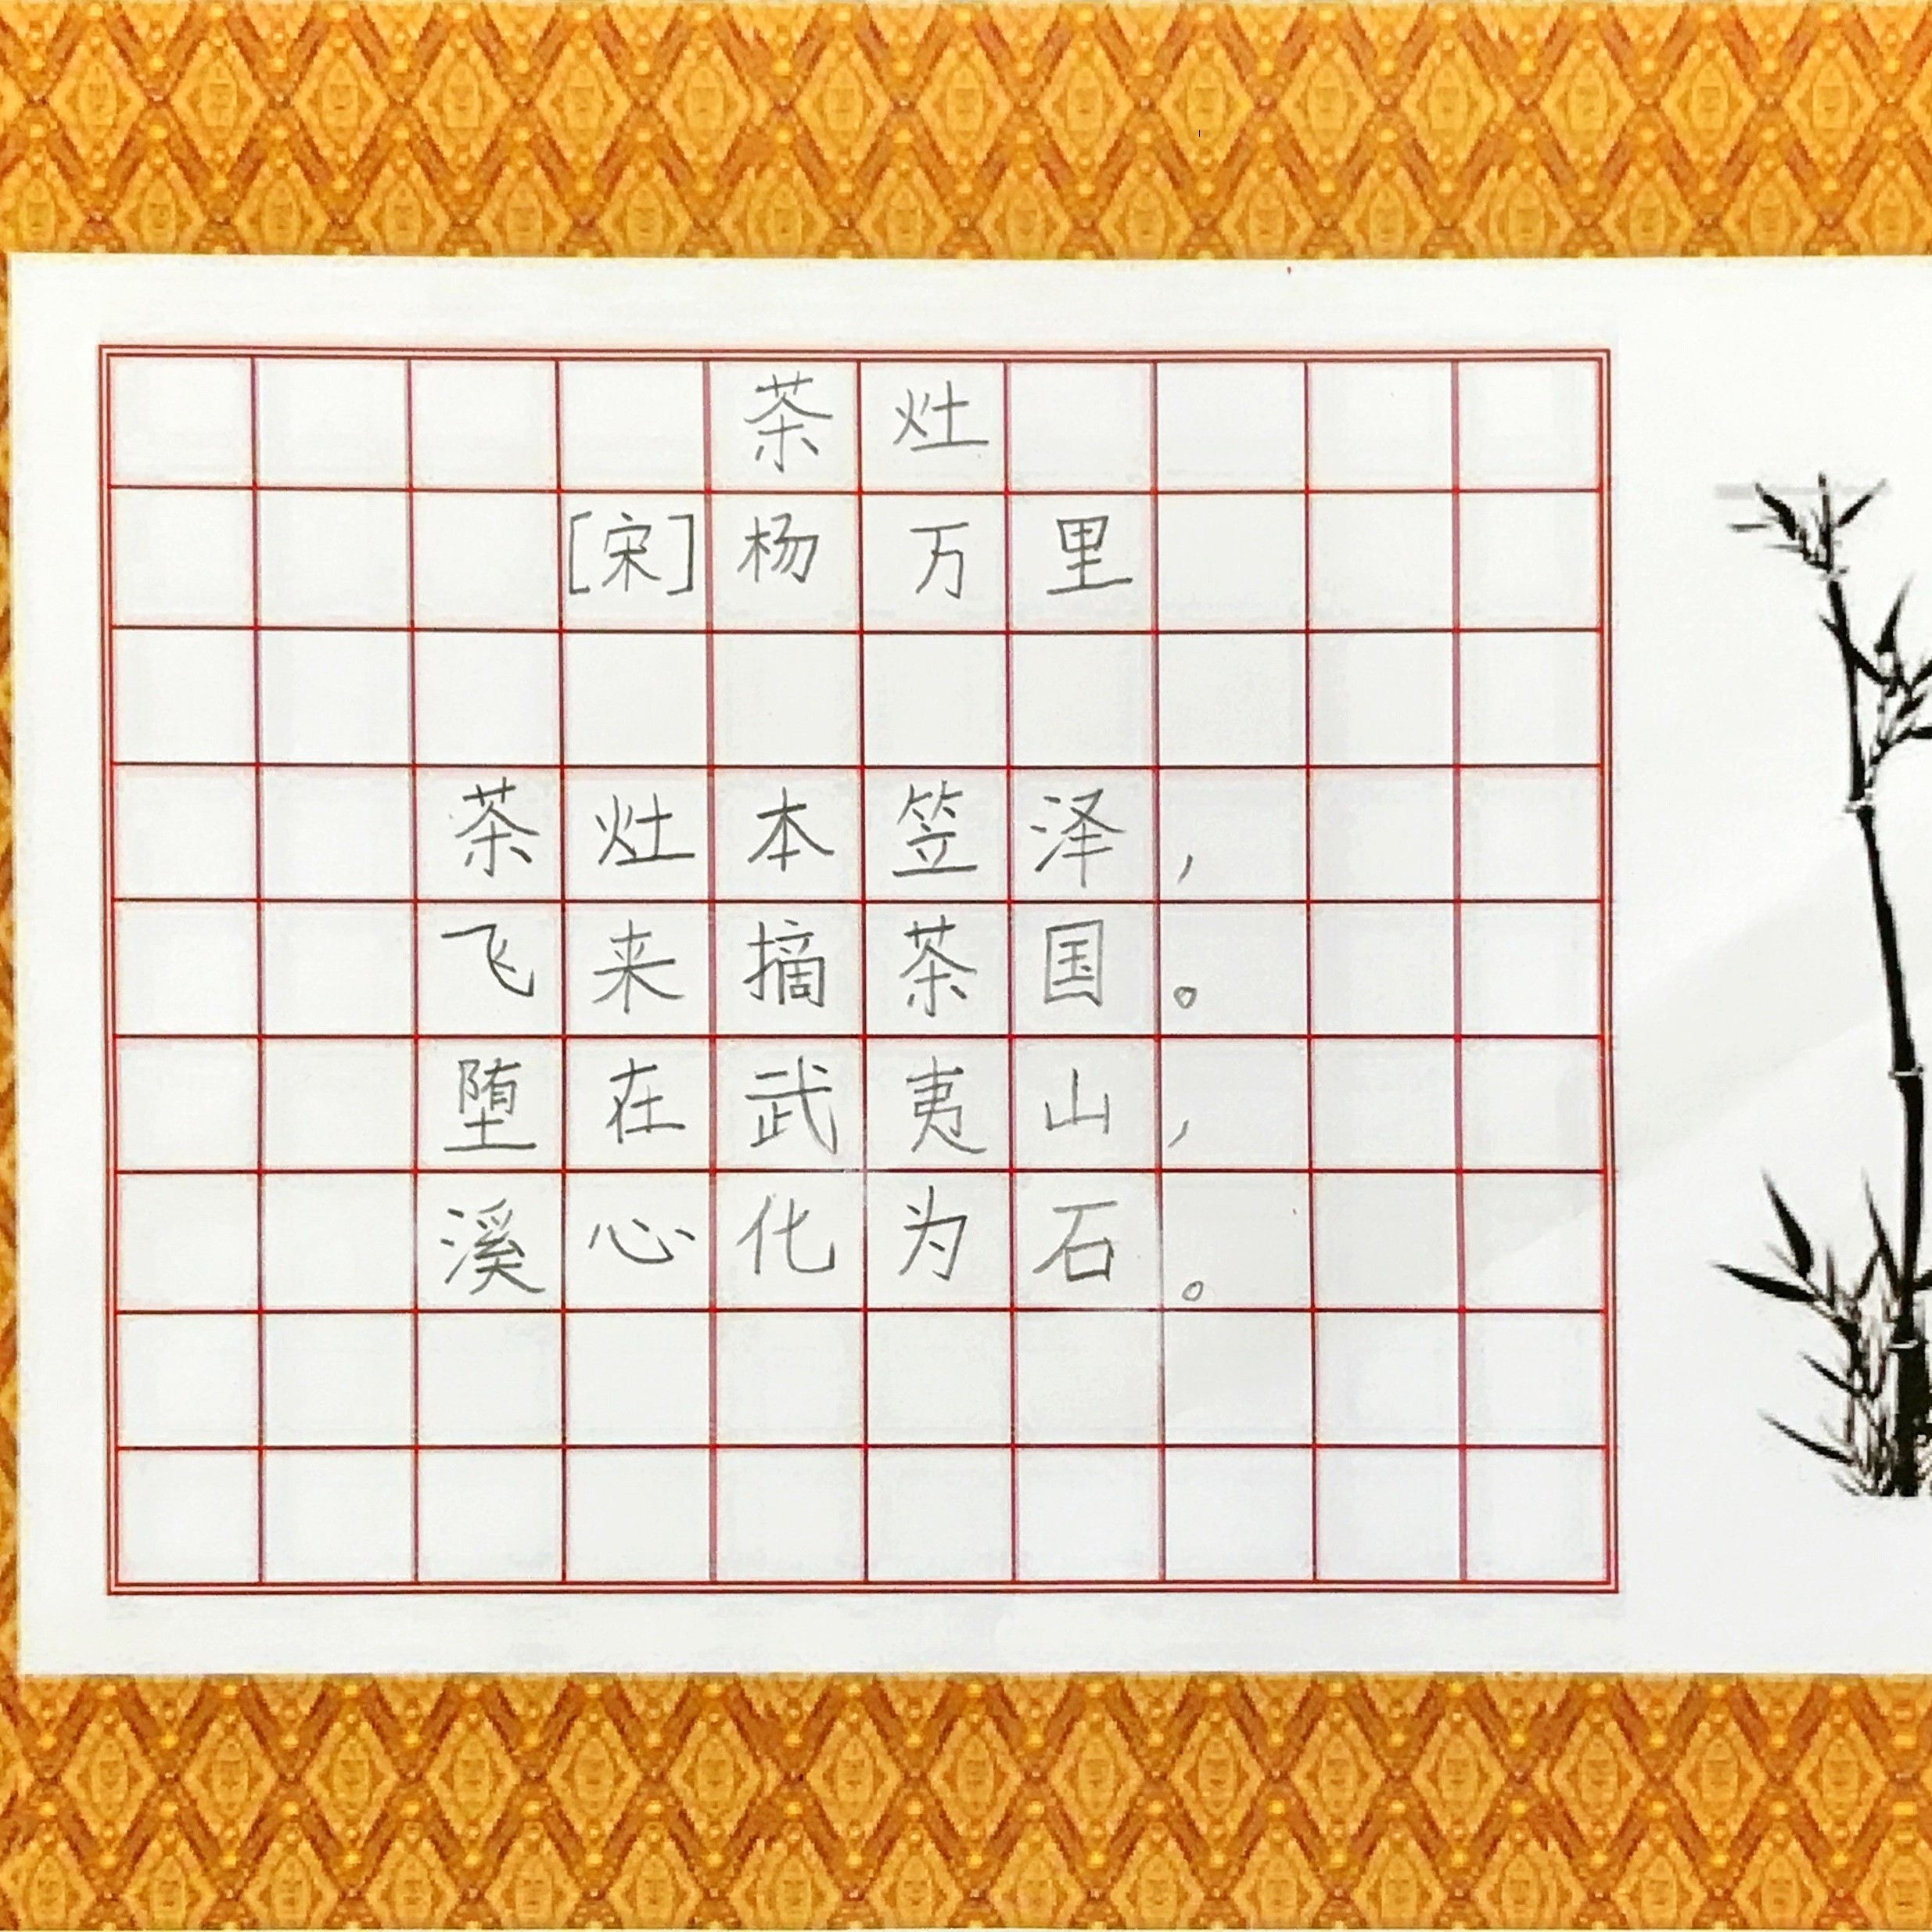 茶灶
[宋]杨万里
茶灶本笠泽,
飞来摘茶国。
堕在武夷山,
溪心化为石。